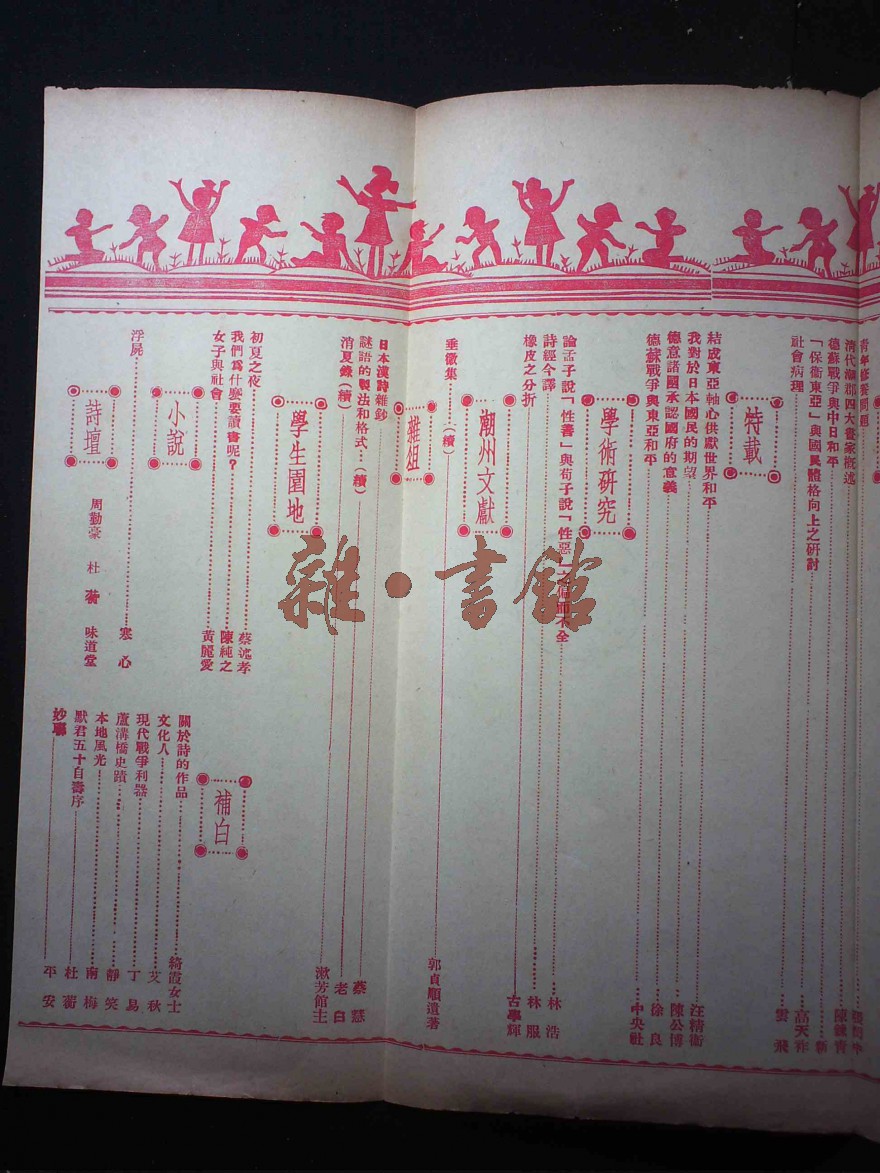 青年修養問題
清代潮郡四大畫家概述……陳鍊青
德蘇戰爭與中日和平
「保衞東亞」與國民體格向上之研討……高天祚
社會病理……雲飛
特載
結成東亞軸心供獻世界和平……汪精衞
我對於日本國民的期望……陳公博
德意諸國承認國府的意義……徐良
德蘇戰爭與東亞和平……中央社
學術研究
論孟子說「性善」與荀子說「性惡」之偏而不全……林浩
詩經今譯……林服
橡皮之分折……古學輝
潮州文獻
垂徽集……(續)……郭貞順遺著
雜俎
日本漢詩雜鈔……蔡慧
謎語的製法和格式…(續)……老白
消夏錄(續)……漱芳館主
學生園地
初夏之夜……蔡述孝
我們爲什麼要讀書呢?……陳純之
女子與社會……黃麗愛
小說
浮屍……寒心
詩壇
周勤豪 杜蘅 味道堂
補白
關於詩的作品……綺霞女士
文化人……艾秋
現代戰爭利器……丁易
蘆溝橋史蹟……靜笑
本地風光……南梅
默君五十自壽序……杜蘅
妙聯……平安
雜·書館